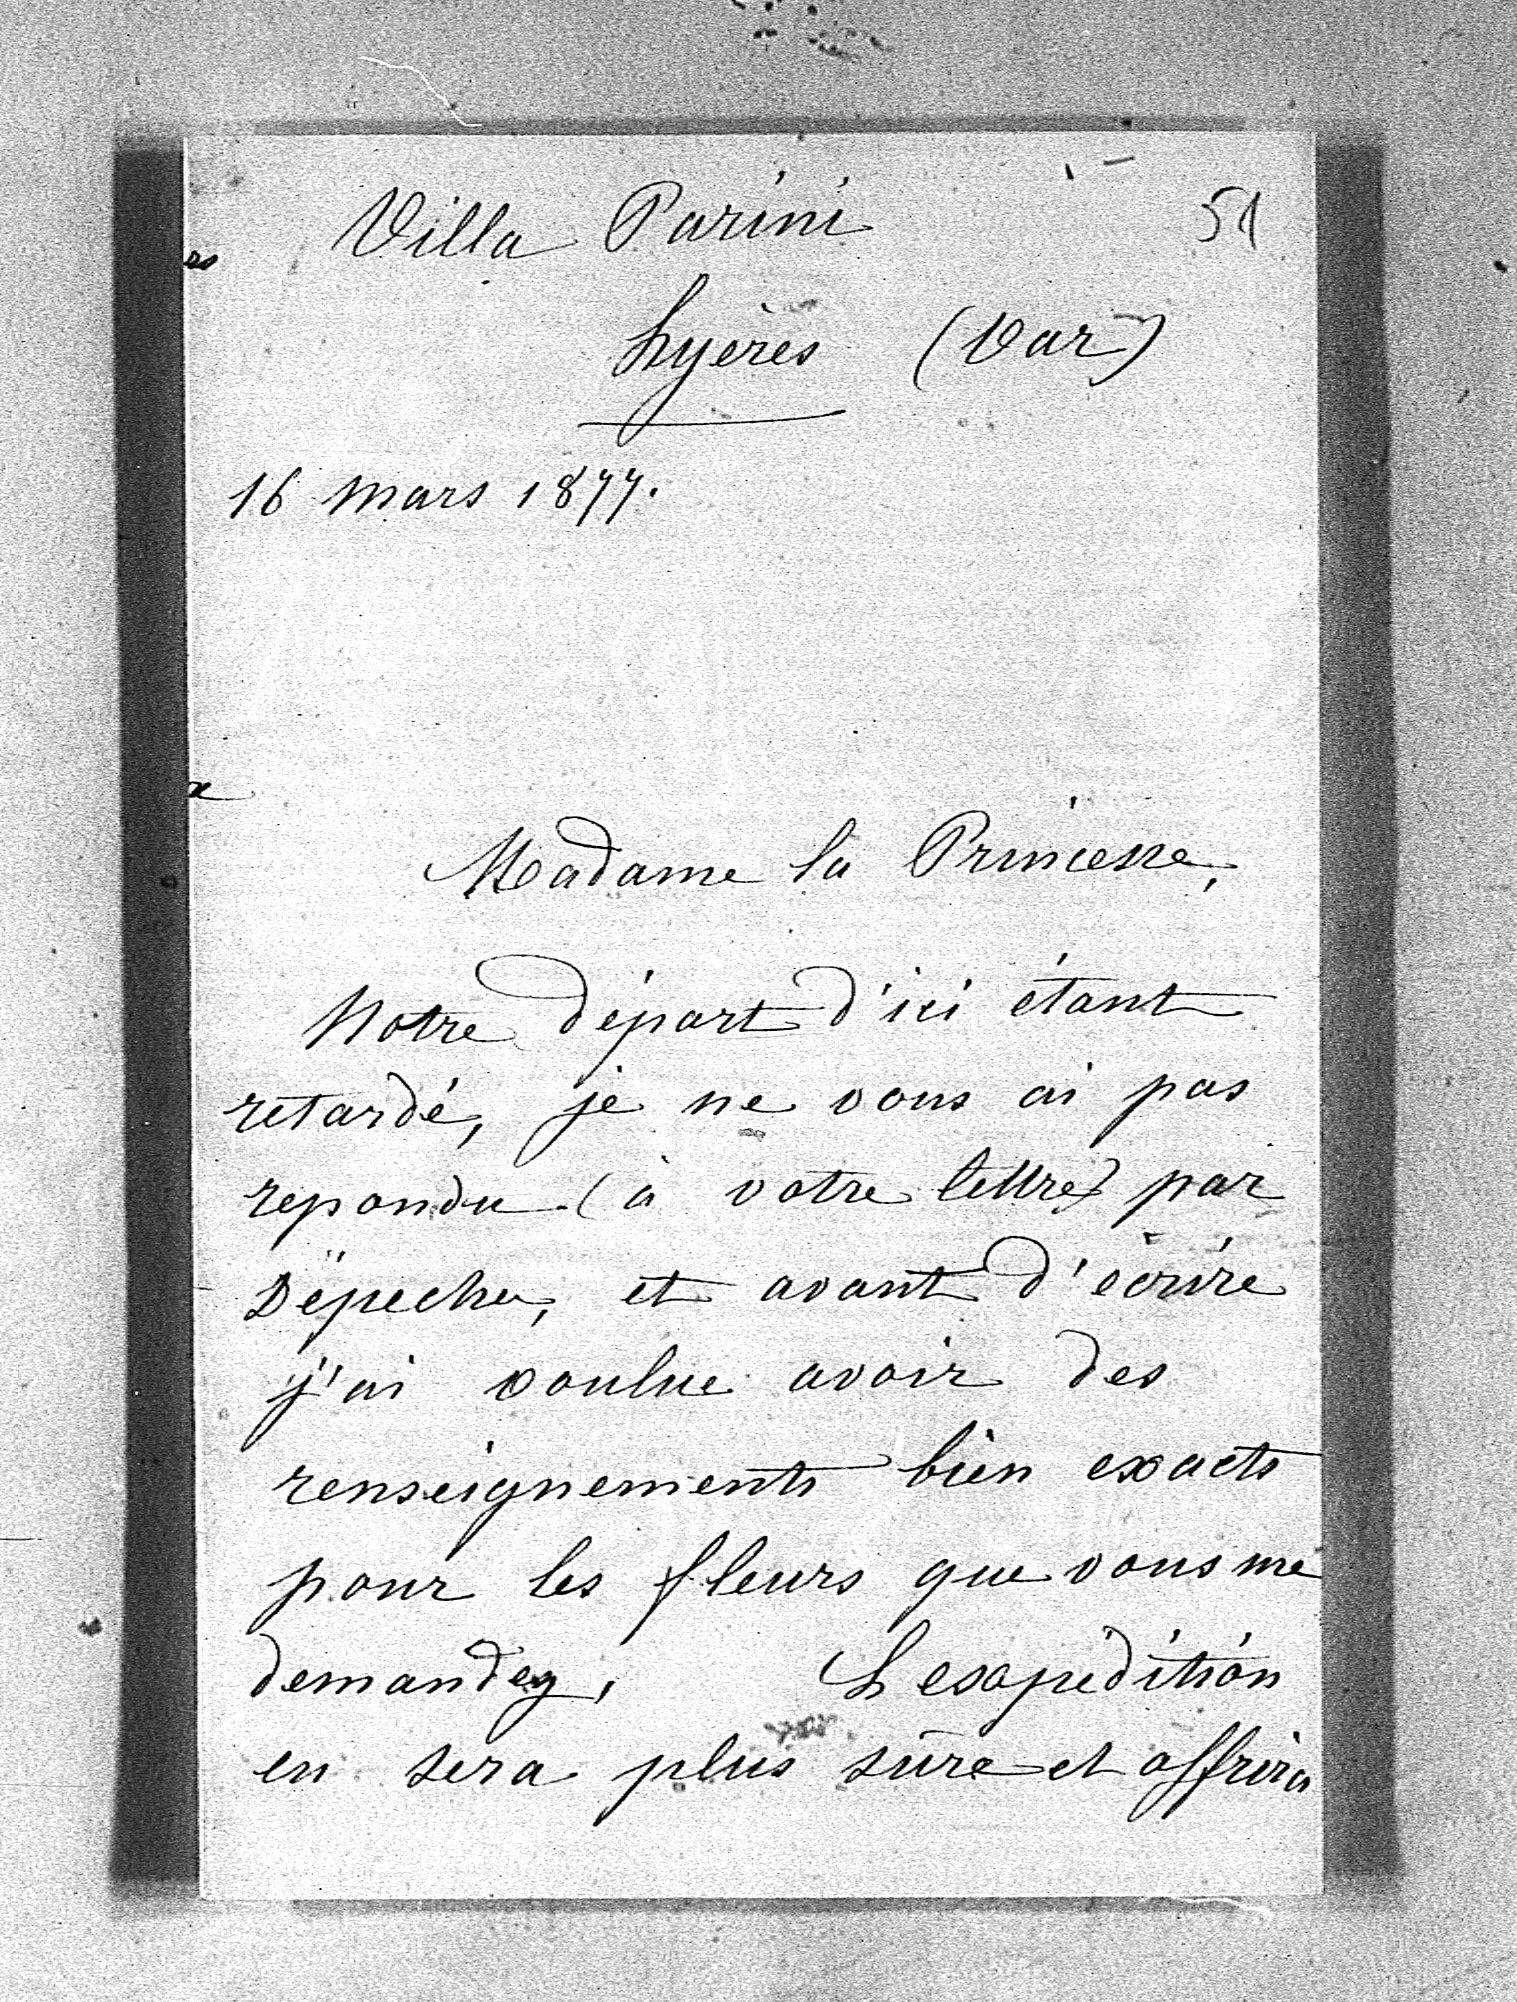 Villa Parini 51
hyères (Var)
16 mars 1877.
Madame la Princesse,
Notre départ d'ici étant
retardé, je ne vous ai pas
repondu (à votre lettre) par
Dépeche, et avant d'écrire
j'ai voulue avoir des
renseignements bien exacts
pour les fleurs que vous me
demandez, L'expédition
en sera plus sûre et offrira